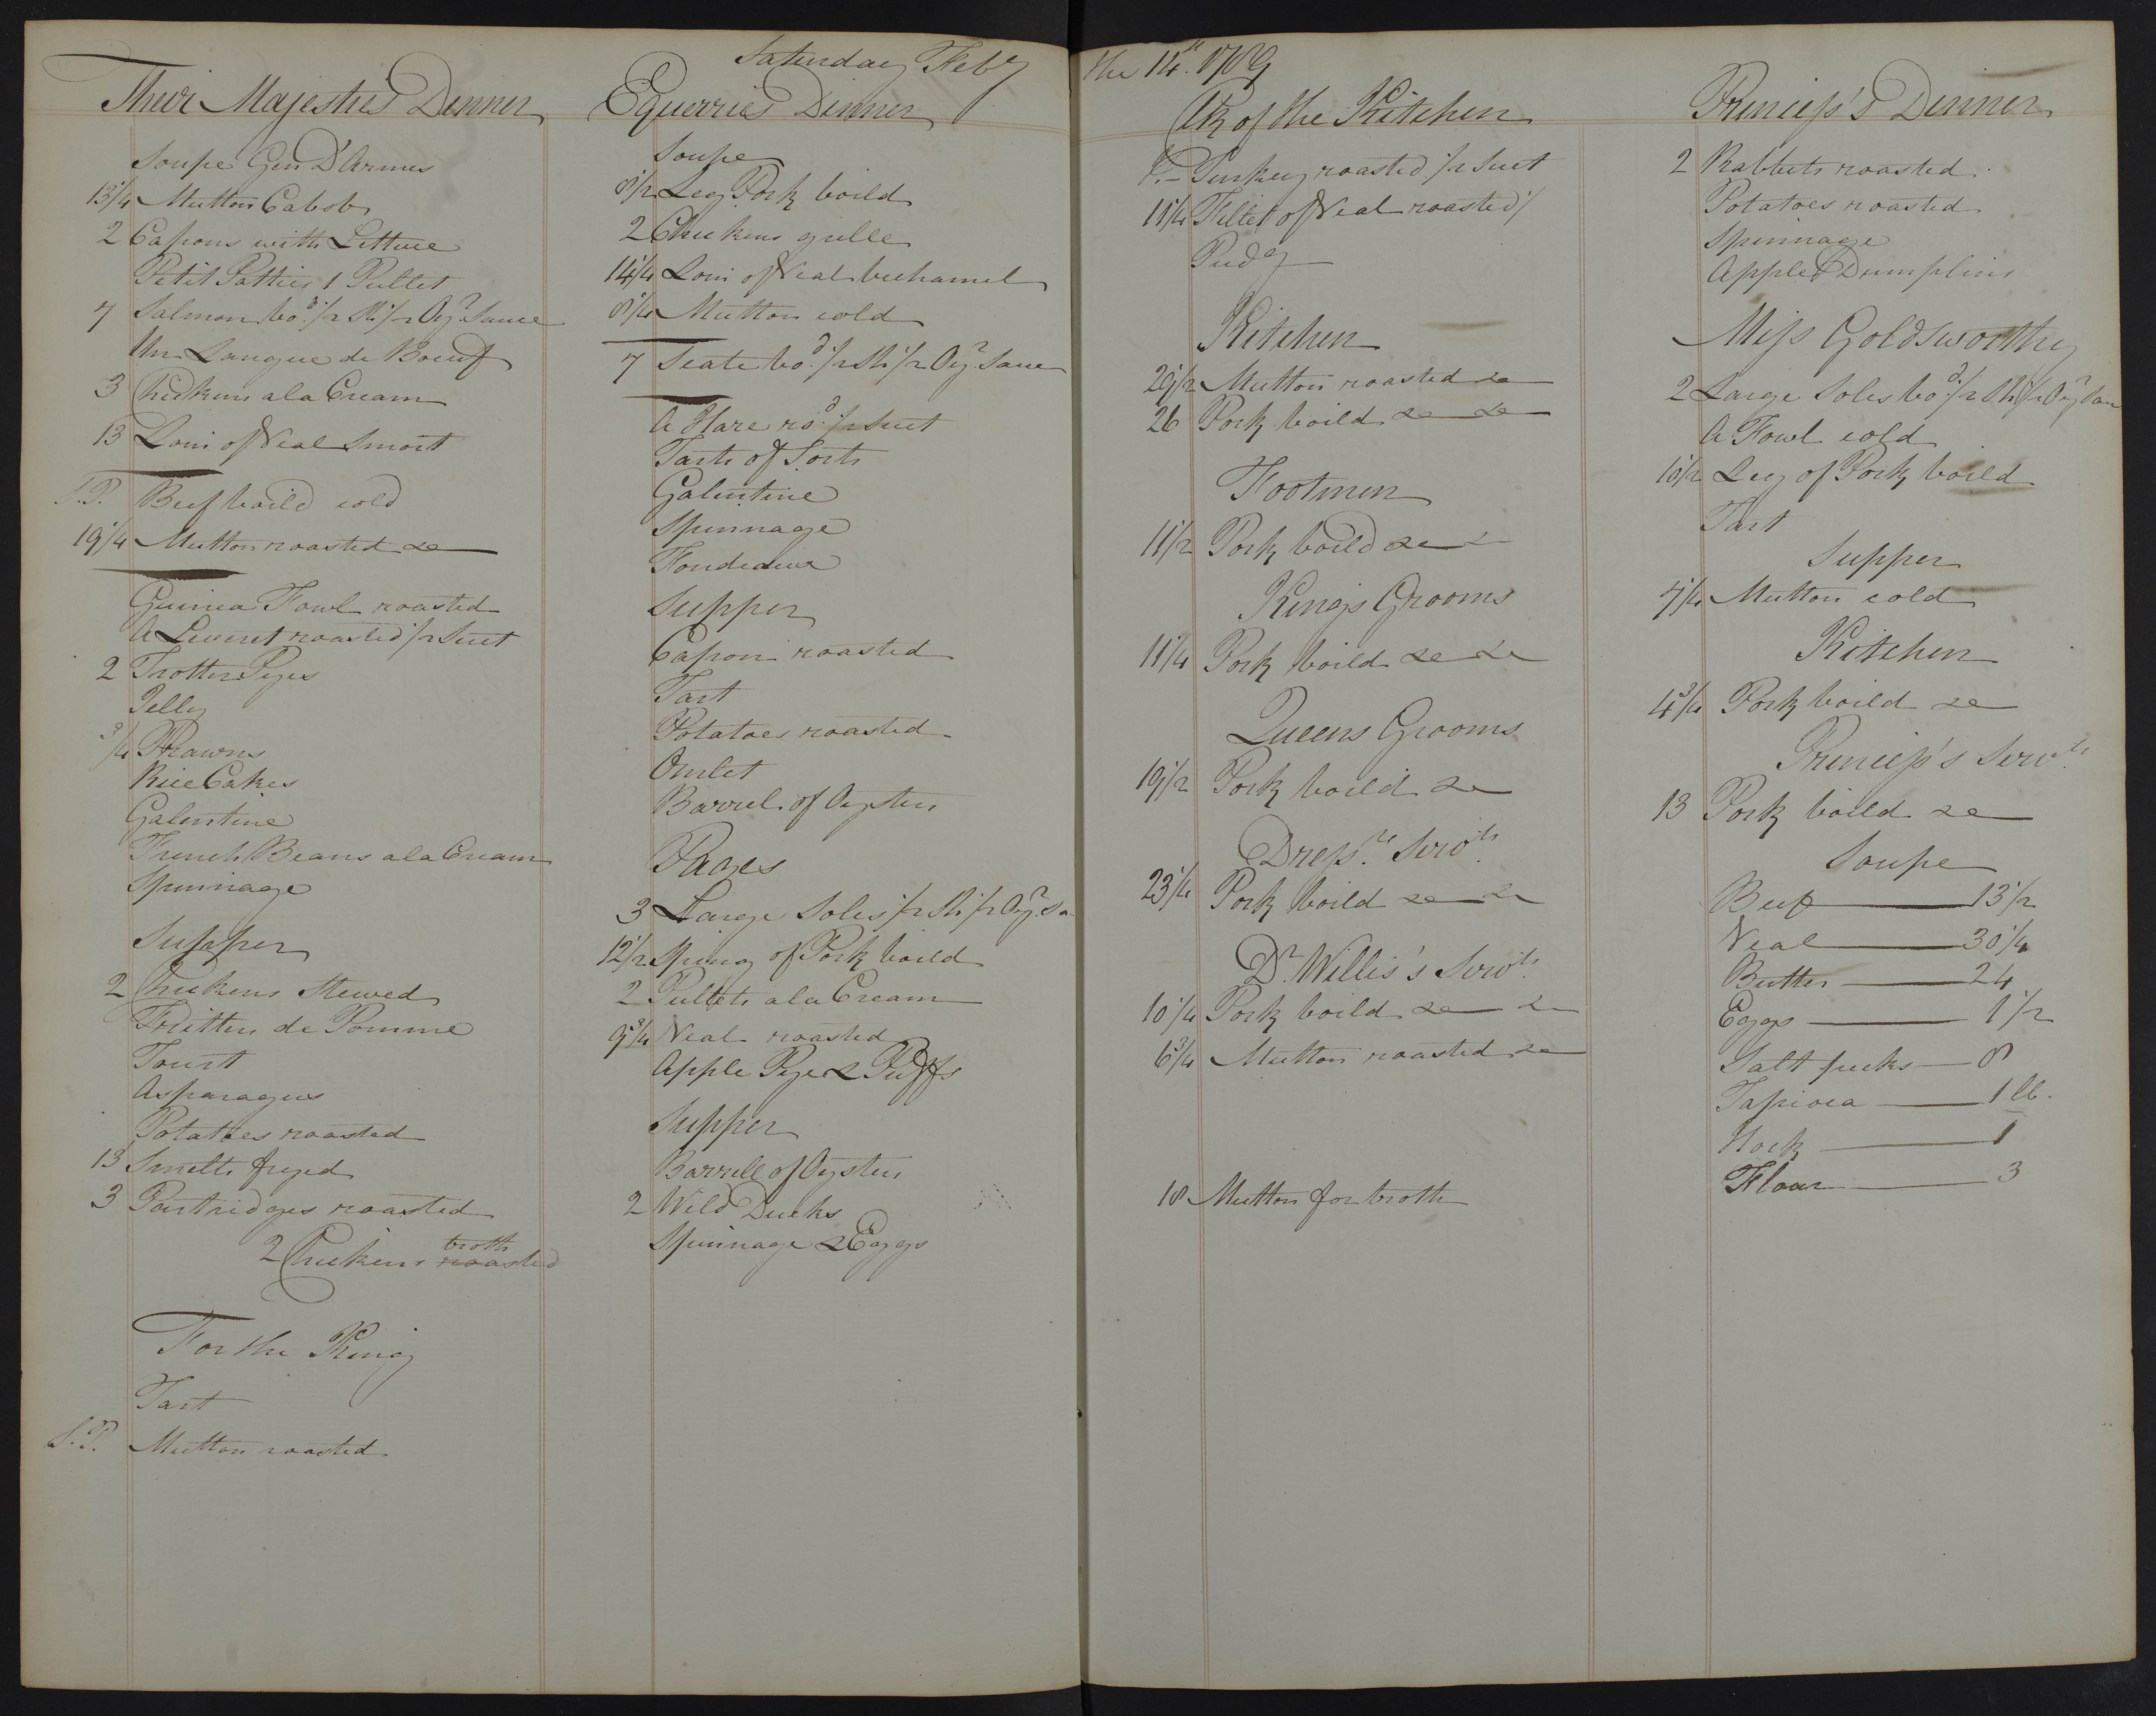 Saturday Feby the 14th. 1789
Their Majesties Dinner
Soupe Gen D'Armes
13 1/4 Mutton Cabobs
2 Capons with Lettuce
Petit Patties 1 Pullet
7 Salmon bod. /2 Sh /2 Oyr. Sauce
Un Langue de Boeuf
3 Chickens a la Cream
13 Loin of Veal Smort
S.P. Beef boild cold
19 1/4 Mutton roasted &c
Guinea Fowl roasted
A Leveret roasted /2 Suet
2 Trotter Pyes
Jelly
3/4 Prawns
Rice Cakes
Galentine
French Beans a la Cream
Spinnage
Supper
2 Chickens Stewed
Fritters de Pomme
Tourt
Asparagus
Potatoes roasted
13 Smelts fryed
3 Partridges roasted
broth
2 Chickens roasted
For the King
Tart
S.P. Mutton roasted
Equerries Dinner
Soupe
8 1/2 Leg Pork boild
2 Chickens grille
14 1/4 Loin of Veal bechamel
8 1/4 Mutton cold
7 Scate bod. /2 Sh /2 Oyr. Sauce
A Hare rod. /2 Suet
Tarts of Sorts
Galentine
Spinnage
Supper
Capon roasted
Tart
Potatoes roasted
Omlet
Barrel of Oysters
Pages
3 Large Soles /2 Sh /2 Oyr. Sa
12 1/2 Spring of Pork boild
2 Pullets a la Cream
9 3/4 Veal roasted
Apple Pye & Puffs
Supper
Barrell of Oysters
2 Wild Ducks
Spinnage & Eggs
Clk of the Kitchen
Turkey roasted /2 Suet
11 1/4 Fillet of Veal roasted /
Pudg
Kitchen
29 1/2 Mutton roasted &c
26 Pork boild &c &c
Footmen
11 1/2 Pork boild &c &c
Kings Grooms
11 1/4 Pork boild &c &c
Queens Grooms
19 1/2 Pork boild &c
Dressrs. Servts.
23 1/4 Pork boild &c &c
Dr. Willis's Servts.
10 1/4 Pork boild &c &c
6 3/4 Mutton roasted &c
18 Mutton for broth
Princess's Dinner
2 Rabbets roasted
Potatoes roasted
Spinnage
Apple Dumplins
Miss Goldsworthy
2 Large Soles bod. /2 Sh /2 Oyr Sau
A Fowl cold
10 1/2 Leg of Pork boild
Tart
Supper
7 1/4 Mutton cold
Kitchen
4 3/4 Pork boild &c
Princess's Servts.
13 Pork boild &c
Soupe
Beef 13 1/2
Veal 30 1/4
Butter 24
Eggs 1 1/2
Salt 8
Tapioca 1 lb.
Hock 1
Flour 3